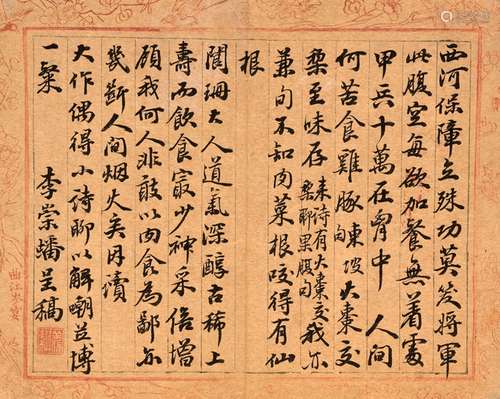 西河保障立殊功莫笑將軍
此腹空每欲加餐無着處
甲兵十萬在胷中 人間
何苦食雞豚東坡句火棗交
梨至味存 来詩有火棗交梨聊果腹句 我尔
兼旬不知肉菜根咬得有仙
根
閬珊大人道氣深醇古稀上
壽而飲食寡少神采倍增
顧我何人非敢以肉食為鄙亦
幾斷人間烟火矣因讀
大作偶得小詩聊以解嘲並博
一粲 李崇蟠呈稿
曲江